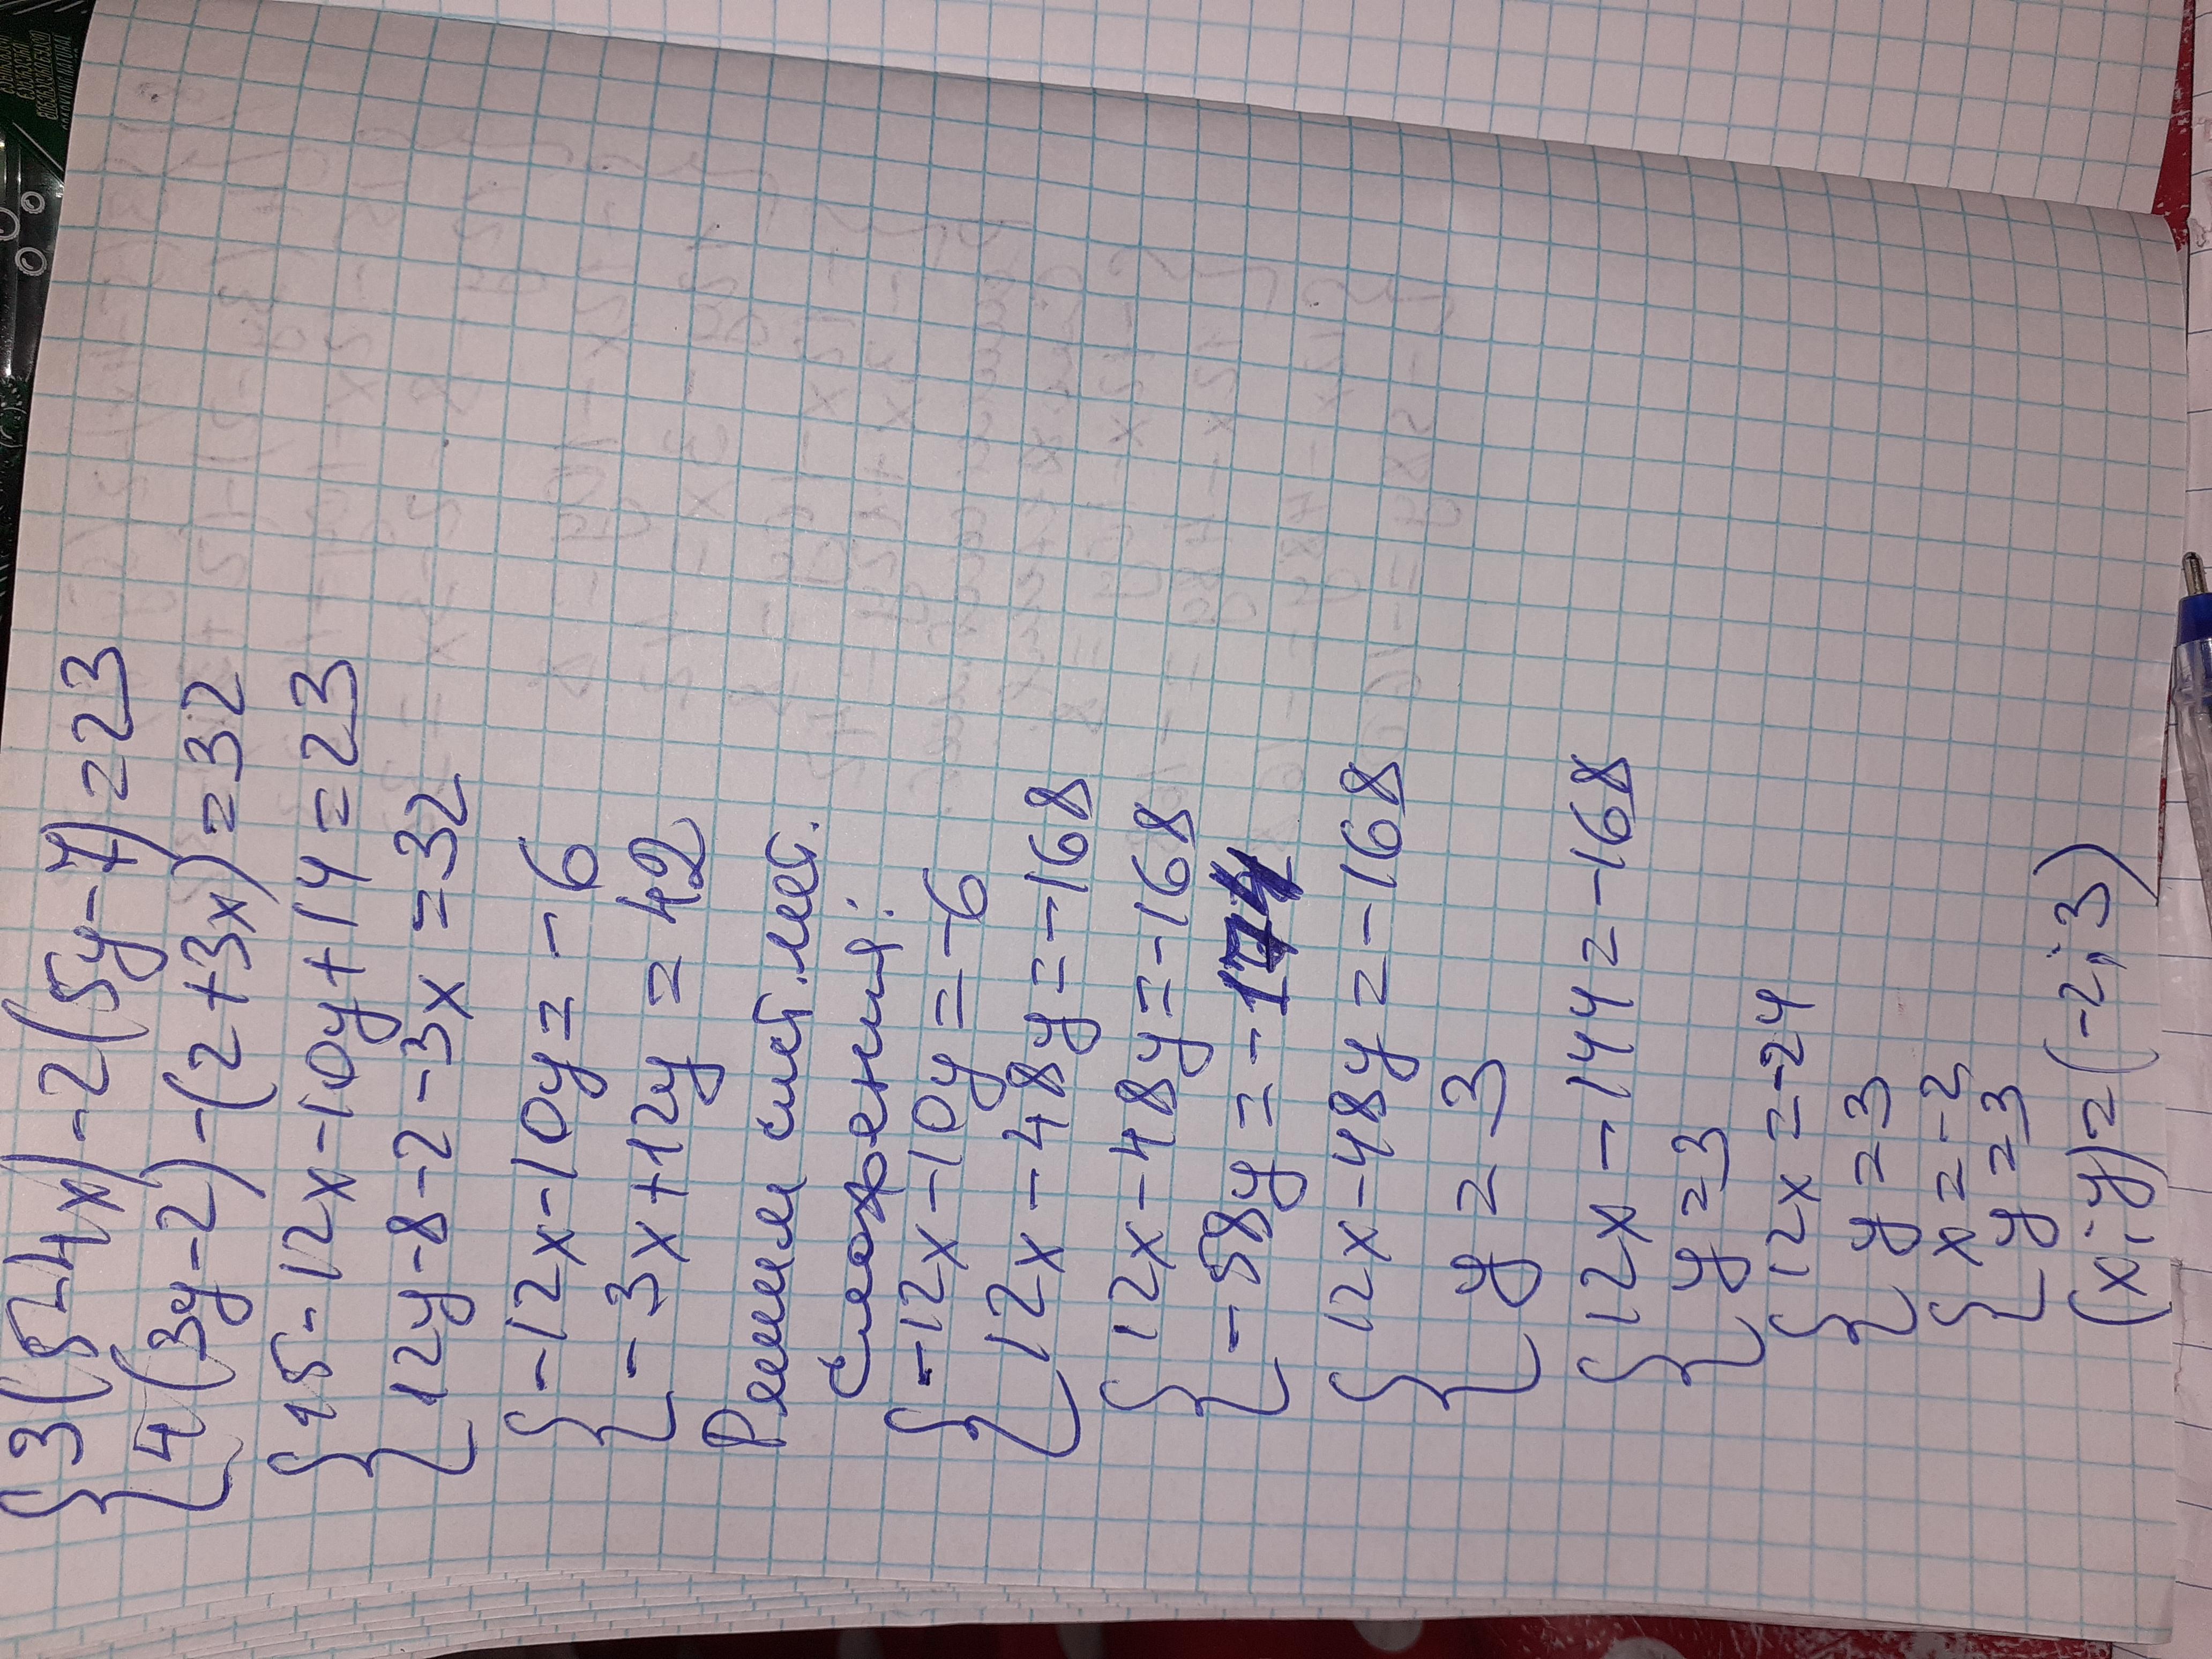 { 3(5-4x)-2(5y-7)=23
4(3y-2)-(2+3x)=32
{ 15-12x-10y+14=23
12y-8-2-3x=32
{ -12x-10y=-6
-3x+12y=42
Решим сист. мет.
сложения:
{ -12x-10y=-6
12x-48y=-168
{ 12x-48y=-168
-58y=-174
{ 12x-48y=-168
y=3
{ 12x-144=-168
y=3
{ 12x=-24
y=3
{ x=-2
y=3
(x;y)=(-2;3)